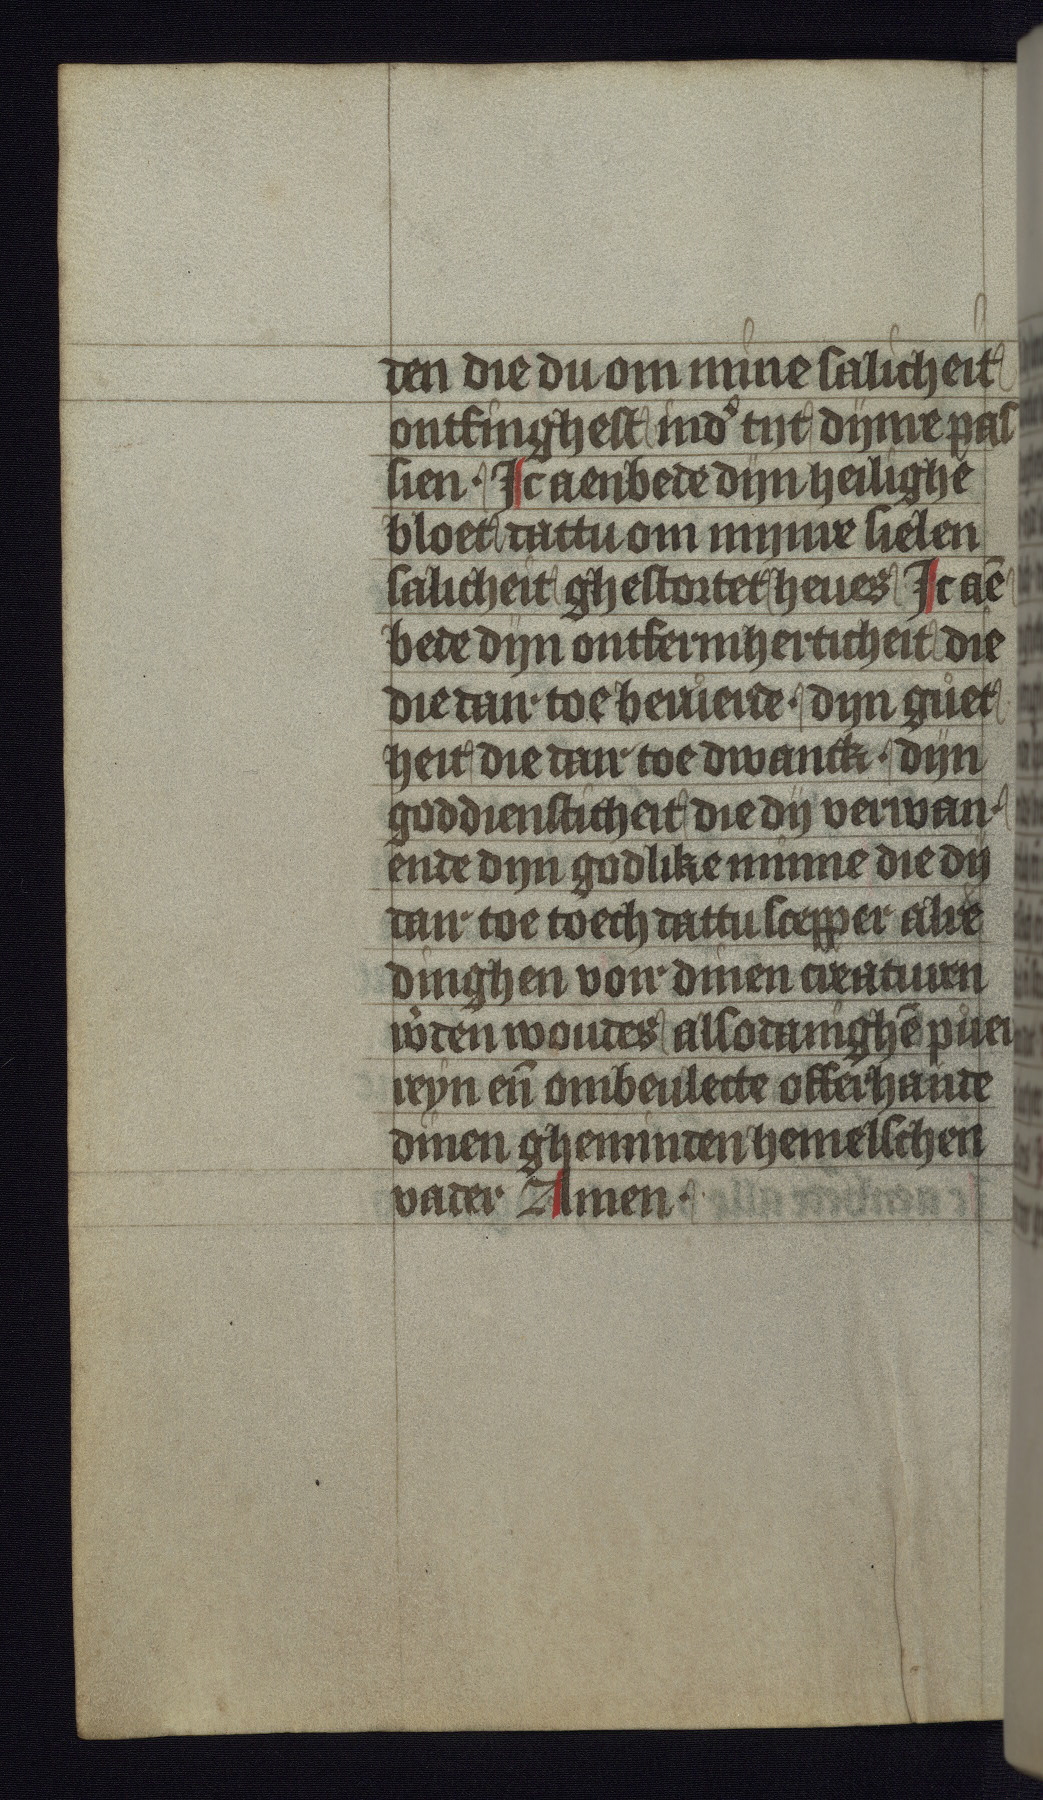 den die du om mine salicheit
ontfinghest ind' tijt dijnre pas
sien. Jc aenbede dijn heilighe
bloet dattu om mijnre sielen
salicheit ghestortet heues Jc aē
bede dijn ontfermherticheit die
die dair toe beruerde. dijn guet
heit die dair toe dwanck. dijn
goddiensticheit die dij verwan.
ende dijn godlike minne die dij
dair toe toech dattu scepper alre
dinghen voir dinen creaturen
w'den woudes alsodanighē puer
reyn eñ ombeulecte offerhande
dinen gheminden hemelschen
vader Amen.